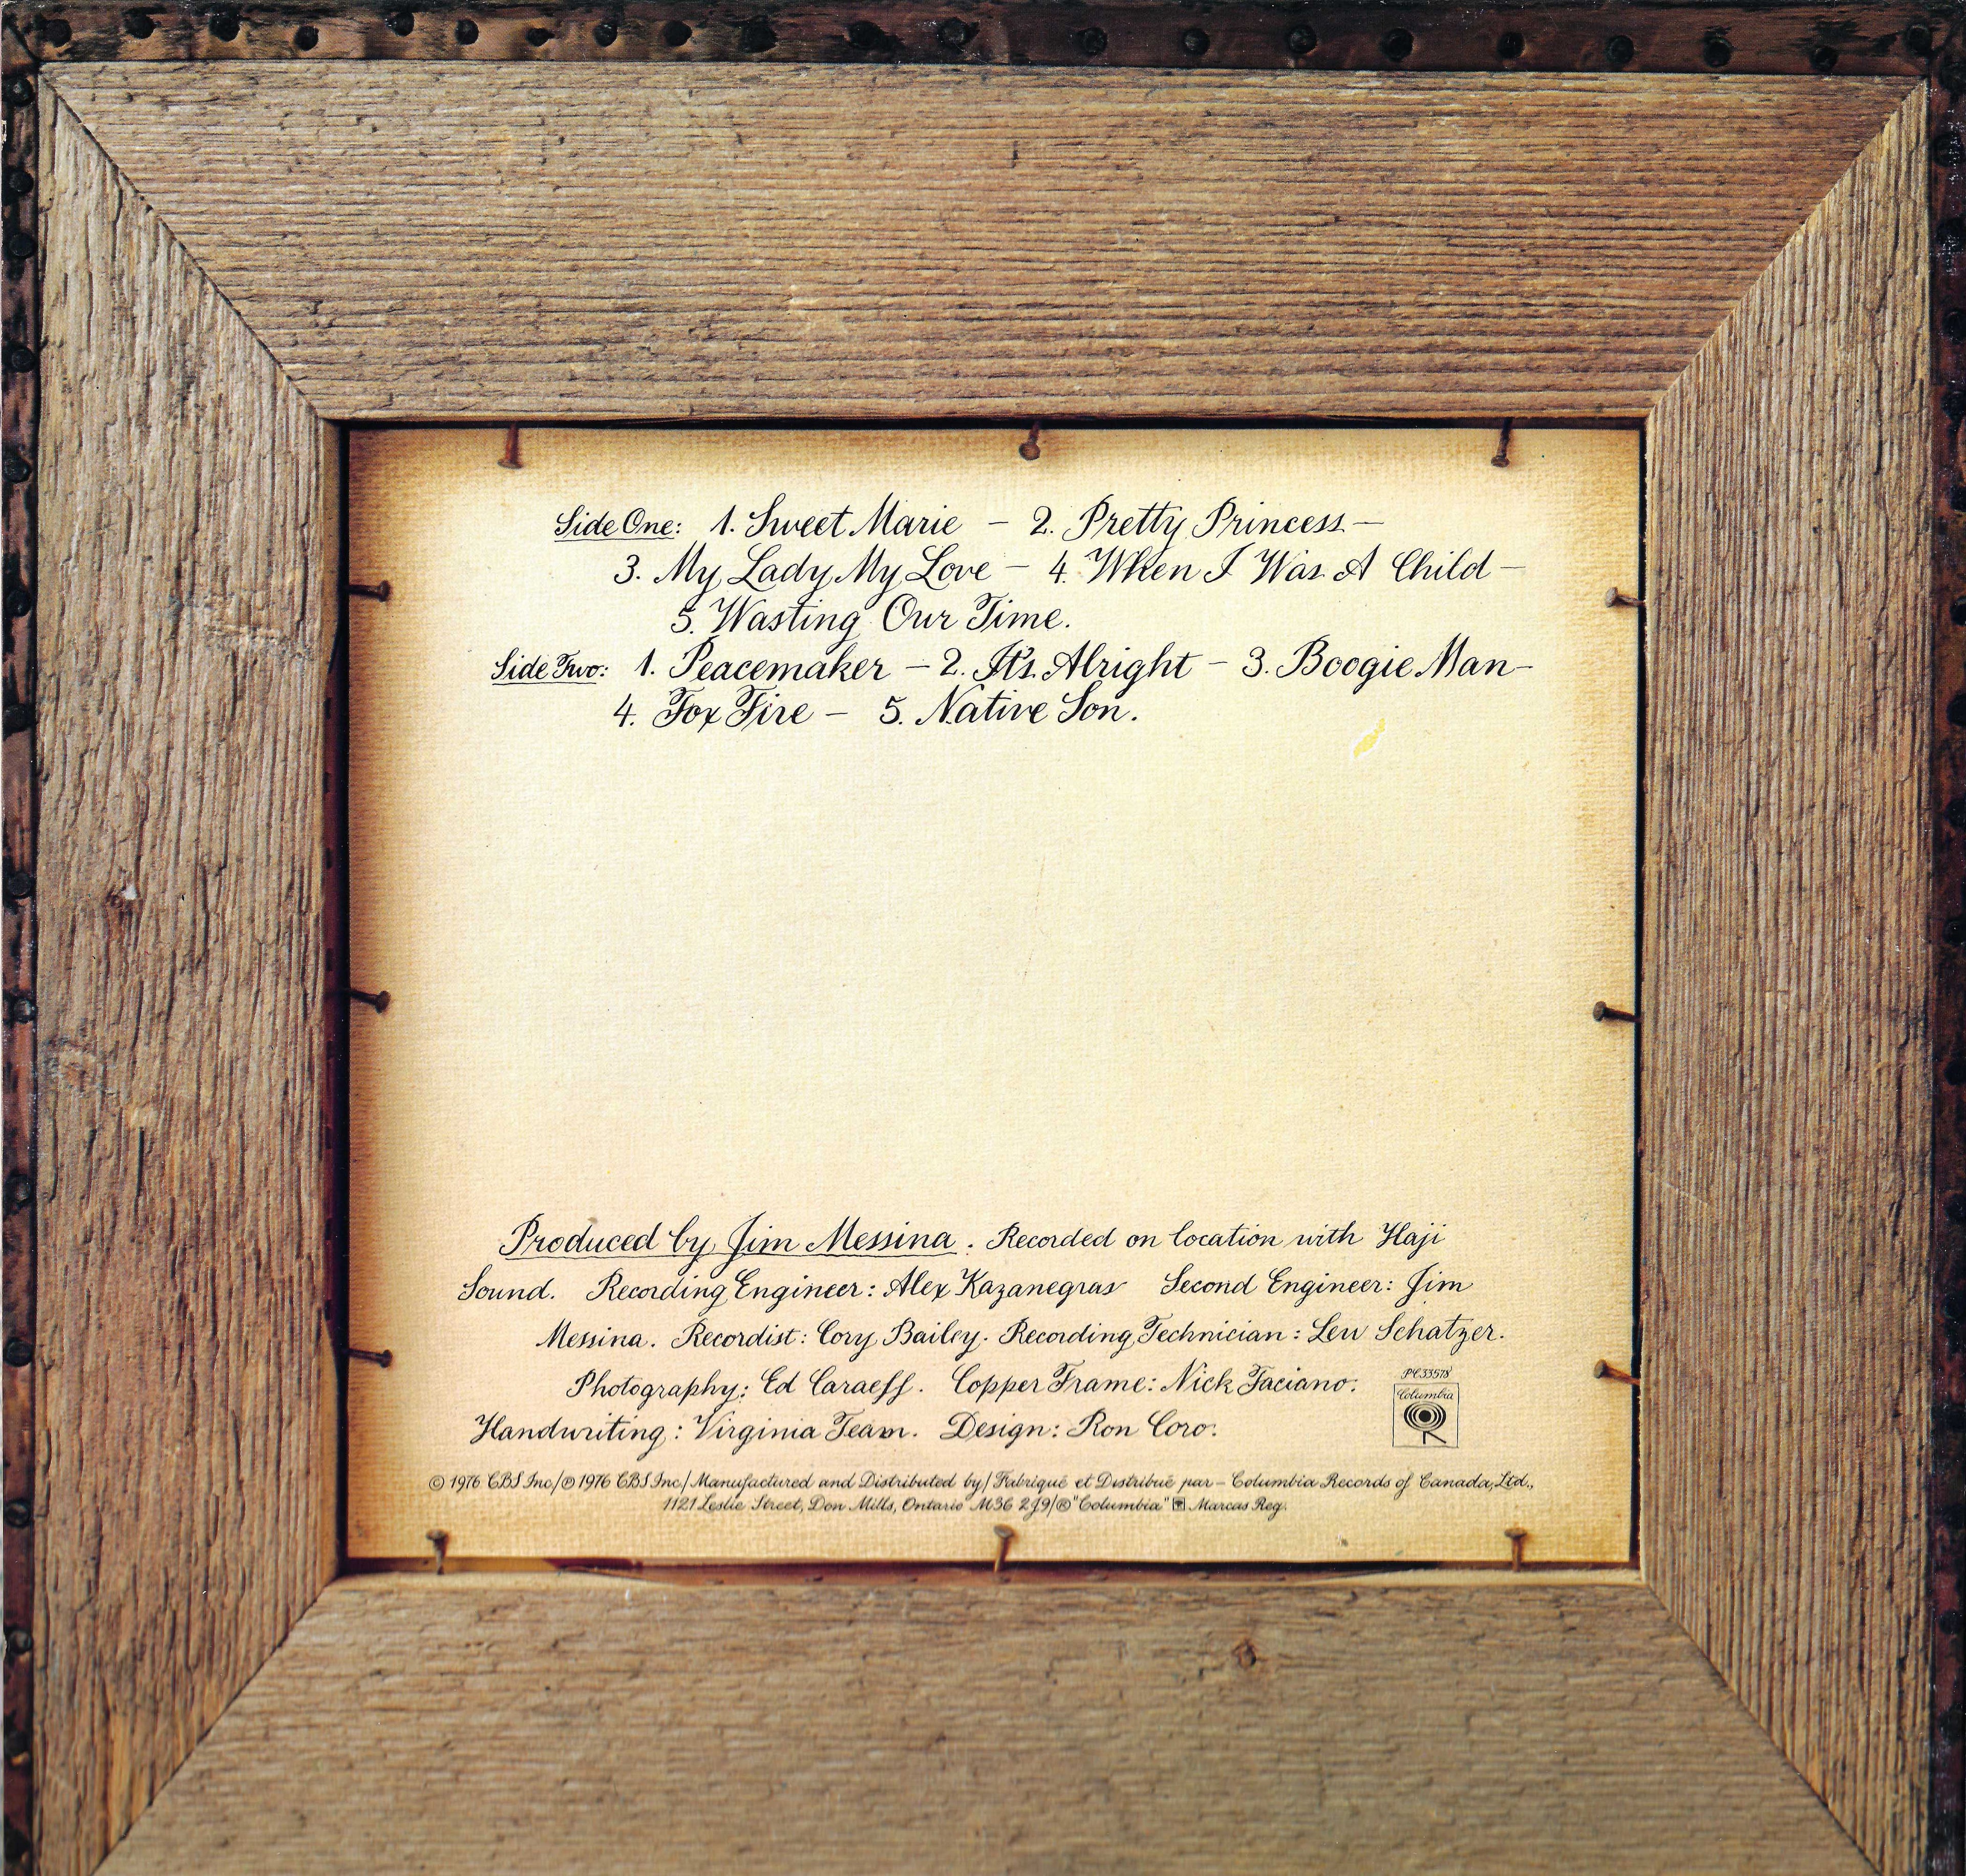 Side One: 1. Sweet Marie – 2. Pretty Princess –
3. My Lady, My Love – 4. When I Was A Child –
5. Wasting Our Time.
Side Two: 1. Peacemaker – 2. It's Alright – 3. Boogie Man –
4. Fox Fire – 5. Native Son.
Produced by Jim Messina. Recorded on location with Haji
Sound. Recording Engineer: Alex Kazanegras Second Engineer: Jim
Messina. Recordist: Cory Bailey. Recording Technician: Lew Schatzer.
Photography: Ed Caraeff. Copper Frame: Nick Faciano.
Handwriting: Virginia Team. Design: Ron Coro.
PC33578
Columbia
© 1976 CBS Inc/℗ 1976 CBS Inc/Manufactured and Distributed by/Fabriqué et Distribué par – Columbia Records of Canada, Ltd.,
1121 Leslie Street, Don Mills, Ontario M3C 2J9/® "Columbia" Marcas Reg.